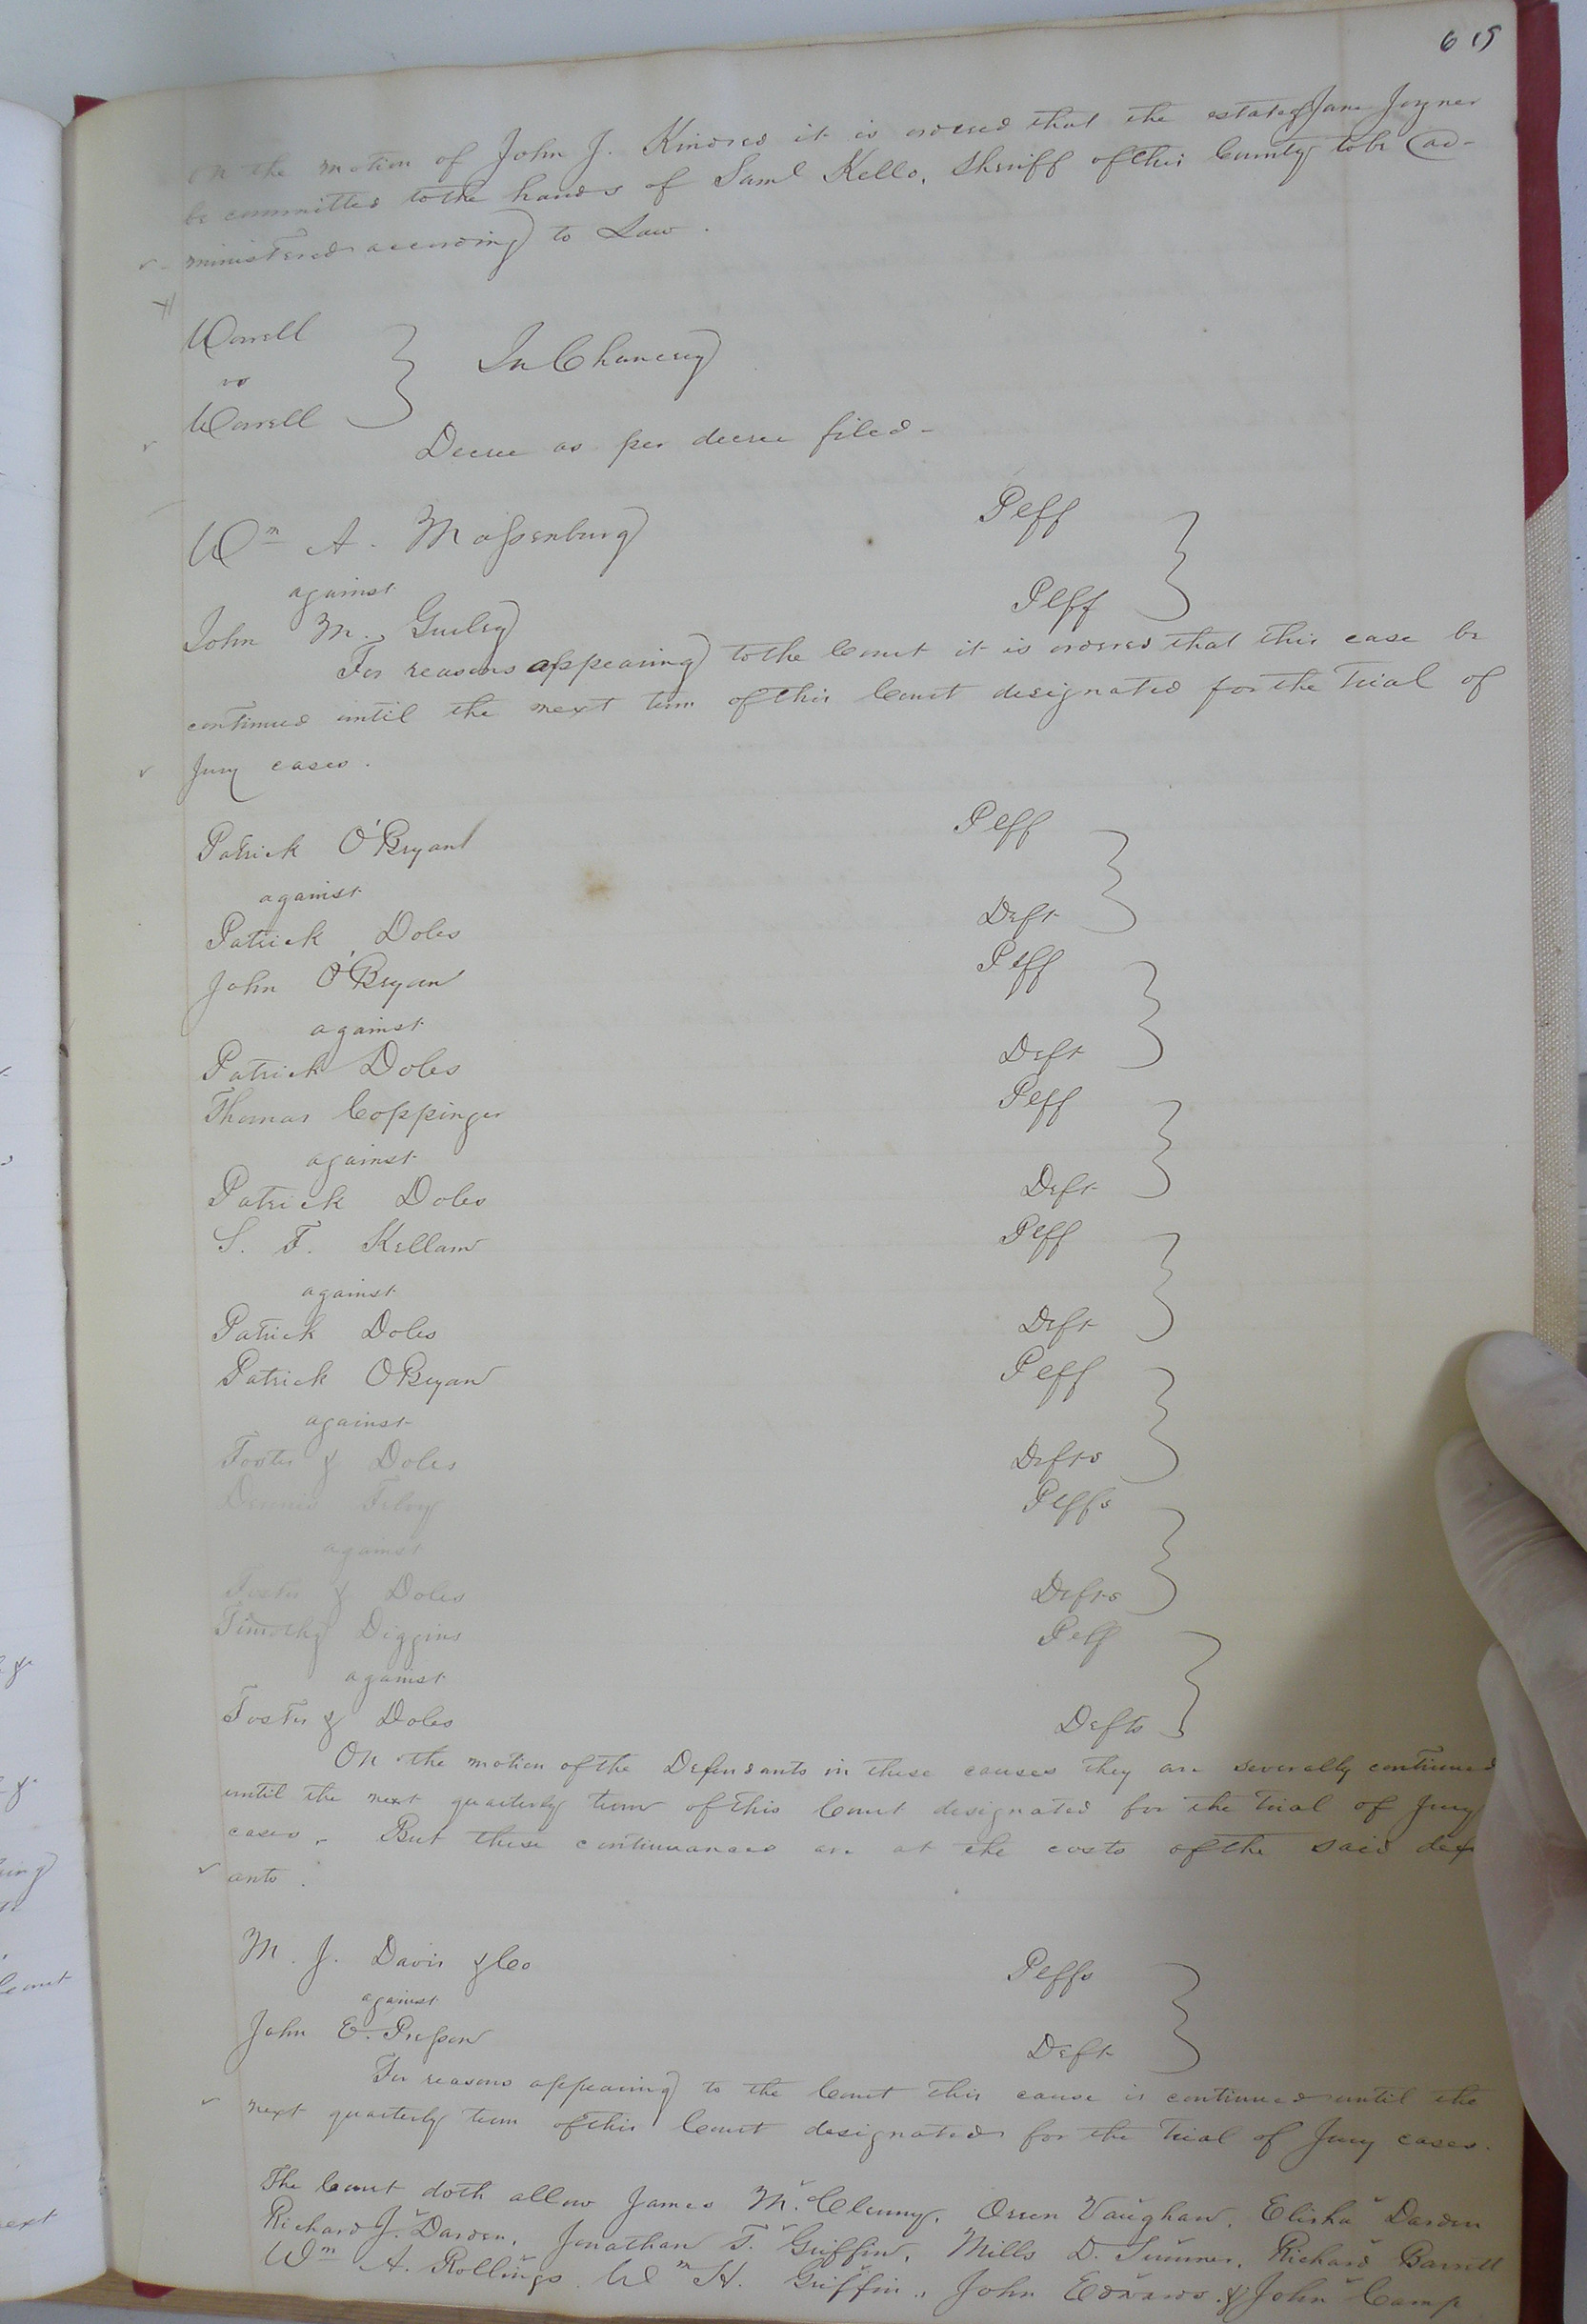 615
On the motion of John J. Kindred it is ordered that the estate of Jane Joyner
be committed to the hands of Saml Kello, Sheriff of this County to be ad-
ministered according to Law.
Worrell
vs
Worrell
In Chancery
Decree as per decree filed -
Wm A. Massenburg Plff
against
John M. Gurley Plff
For reasons appearing to the Court it is ordered that this case be
continued until the next term of this Court designated for the trial of
Jury cases.
Patrick O'Bryant Plff
against
Patrick Doles Deft
John O'Bryan Plff
against
Patrick Doles Deft
Thomas Coppinger Plff
against
Patrick Doles Deft
S. F. Kellam Plff
against
Patrick Doles Deft
Patrick OBryan Plff
against
Foster & Doles Defts
Dennis Plffs
against
Foster & Doles Defts
Timothy Diggins Plff
against
Foster & Doles Defts
On the motion of the Defendants in these causes they are severally continued
until the next quarterly term of this Court designated for the trial of Jury
cases. But these continuances are at the costs of the said def
ants.
M. J. Davis & Co Plffs
against
John E. Presson Deft
For reasons appearing to the Court this cause is continued until the
next quarterly term of this Court designated for the trial of Jury cases.
The Court doth allow James McClenny, Orren Vaughan, Elisha Darden
Richard J. Darden, Jonathan T. Griffin, Mills D. Sumner, Richard Barrett
Wm A. Rollings, Wm H. Griffin, John Edwards & John Camp